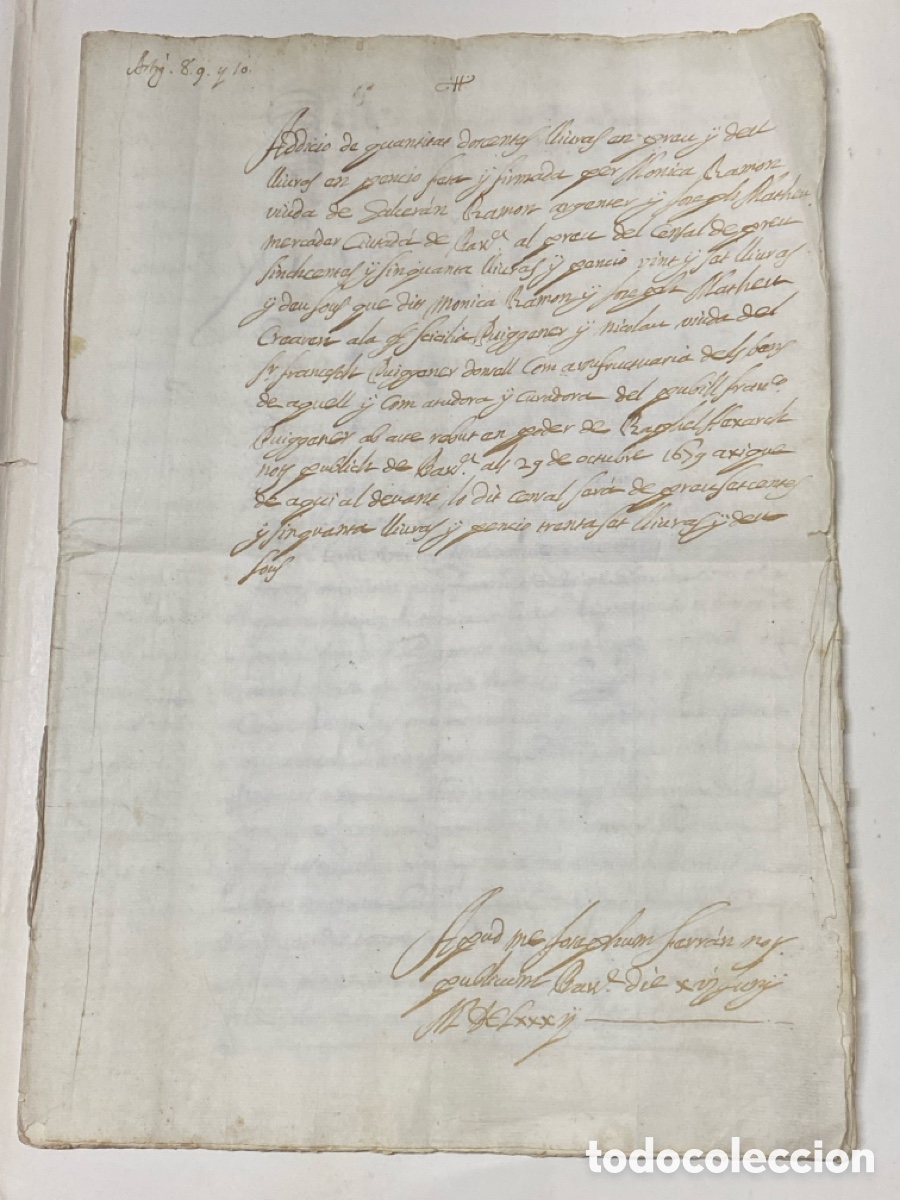 Artg. 8. 9. y 10.
Addicio de quantitat docentas lliuras en preu y deu
lliuras en pencio feta y firmada per Monica Ramon
viuda de Galcerán Ramon argenter y Joseph Matheu
mercader Ciutadá de Barna. al preu del Censal de preu
sinchcentas y sinquanta lliuras y pencio vint y set lliuras
y deu sous que dits Monica Ramon y Joseph Matheu
Crearen a la Sicilia Puiggener y viuda del
Sr. francesch Puiggener donzell Com a usufructuaria dels bens
de aquell y Com a tudora y Curadora del pubill franco.
Puiggener ab acte rebut en poder de Raphel
noty publich de Barna. als 29 de octubre 1679 axi que
de aqui al devant lo dit Censal será de preu setcentas
y sinquanta lliuras y pencio trenta set lliuras y deu
sous
Apud me Josephum Ferrán noty.
publicum Barna. die Juny
todocoleccion